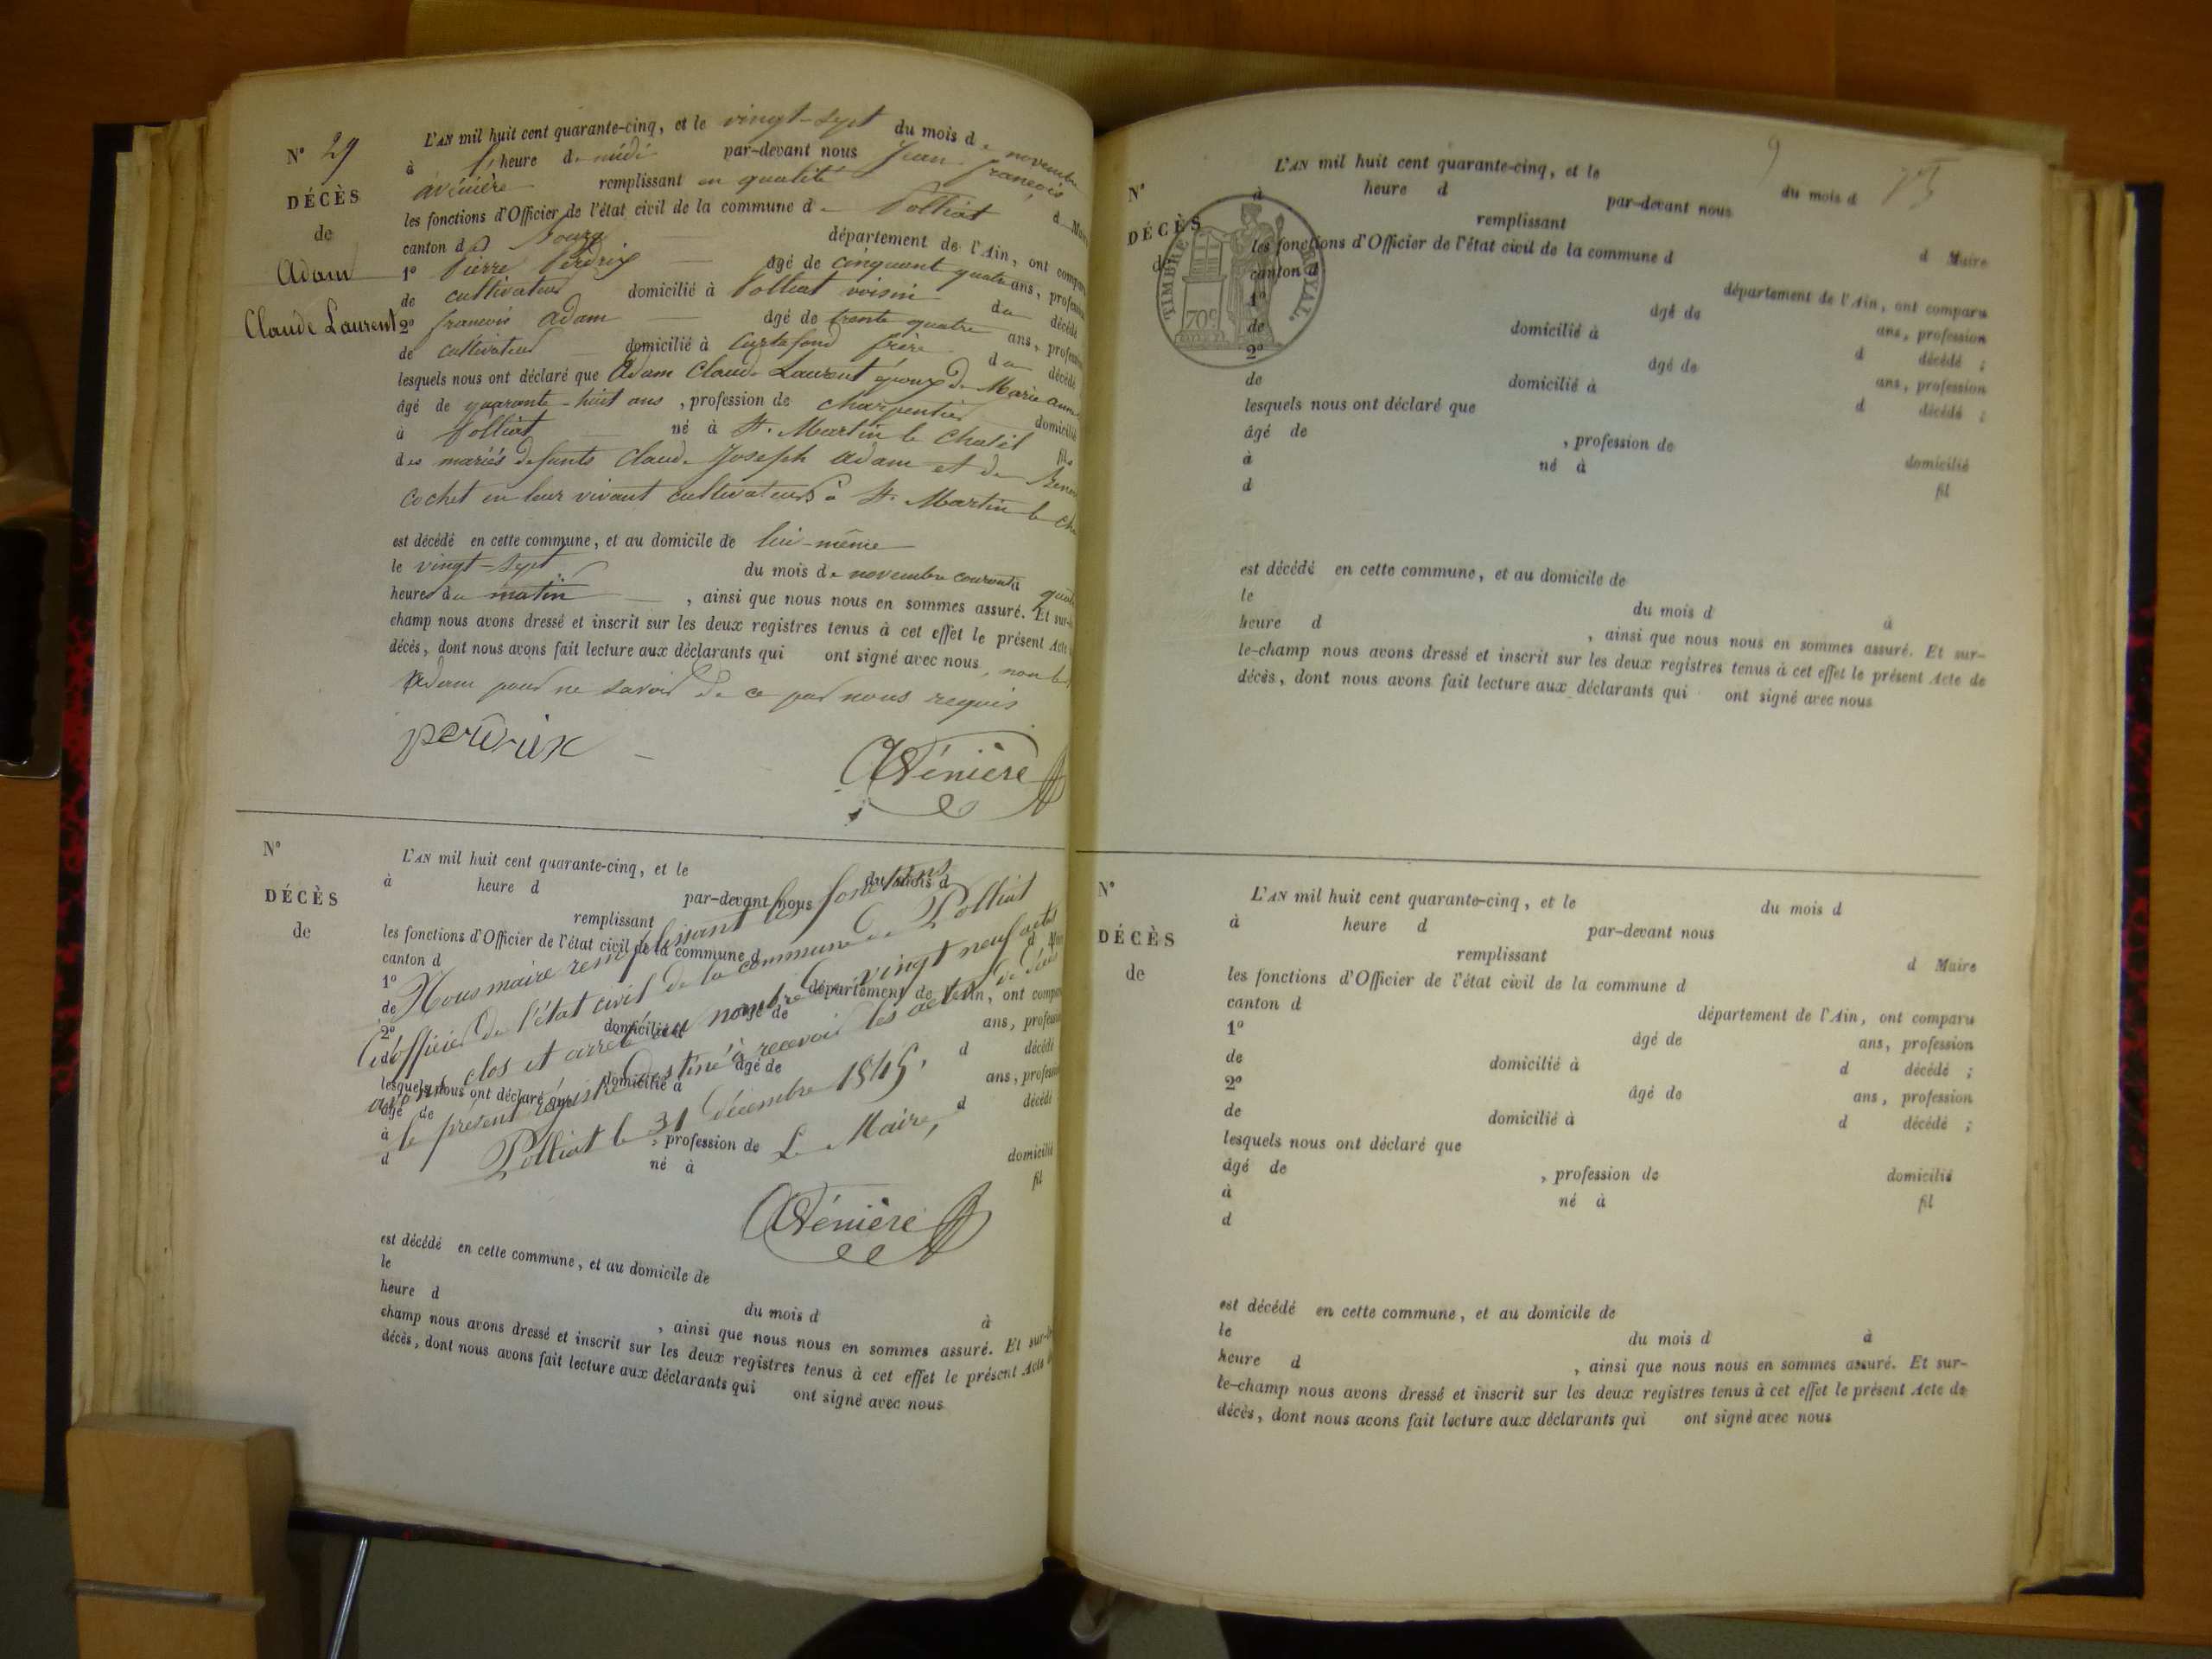 N° 29
DÉCÈS
de
Adam
Claude Laurent
L'AN mil huit cent quarante-cinq, et le vingt-sept du mois de novembre
à heure de midi par-devant nous Jean François
avénière remplissant en qualité d Maire
les fonctions d'Officier de l'état civil de la commune de Polliat
canton de Bourg département de l'Ain, ont compar
1° Pierre Perdrix âgé de cinquant quatre ans, profession
de cultivateur domicilié à Polliat voisin du décédé
2° francois adam âgé de trente quatre ans, profession
de cultivateur domicilié à Curtafond frère du décédé
lesquels nous ont déclaré que Adam Claude Laurent époux de Marie anne
âgé de quarante-huit ans, profession de charpentier domicilié
à Polliat né à St. Martin le Chatel fils
des mariés defunts Claude Joseph Adam et de
Cochet en leur vivant cultivateurs à St. Martin le Cha
est décédé en cette commune, et au domicile de lui-même
le vingt-sept du mois de novembre courant à quatre
heures du matin, ainsi que nous nous en sommes assuré. Et sur-le-
champ nous avons dressé et inscrit sur les deux registres tenus à cet effet le présent Acte
décès, dont nous avons fait lecture aux déclarants qui ont signé avec nous, non led
Adam pour ne savoir de ce par nous requis
perdrix
Avénière
N°
DÉCÈS
de
L'AN mil huit cent quarante-cinq, et le du mois d
à heure d par-devant nous
remplissant d Maire
les fonctions d'Officier de l'état civil de la commune d
canton d département de l'Ain, ont compar
1° âgé de ans, profession
de domicilié à d décédé
2° âgé de ans, profession
d domicilié à d décédé
lesquels nous ont déclaré que
âgé de , profession de domicilié
à né à fil
d
Nous maire remplissant les fonctions
d'officier de l'état civil de la commune de Polliat
avons clos et arrêté au nombre de vingt neuf actes
le présent régistre destiné à recevoir les actes de décès
Polliat le 31 décembre 1845.
Le Maire,
Avénière
est décédé en cette commune, et au domicile de
le du mois d à
heure d , ainsi que nous nous en sommes assuré. Et sur-le-
champ nous avons dressé et inscrit sur les deux registres tenus à cet effet le présent Acte de
décès, dont nous avons fait lecture aux déclarants qui ont signé avec nous
9
TIMBRE ROYAL.
70c
N°
DÉCÈS
de
L'AN mil huit cent quarante-cinq, et le du mois d
à heure d par-devant nous
remplissant d Maire
les fonctions d'Officier de l'état civil de la commune d
canton d département de l'Ain, ont comparu
1° âgé de ans, profession
de domicilié à d décédé ;
2° âgé de ans, profession
de domicilié à d décédé ;
lesquels nous ont déclaré que
âgé de , profession de domicilié
à né à fil
d
est décédé en cette commune, et au domicile de
le du mois d à
heure d , ainsi que nous nous en sommes assuré. Et sur-
le-champ nous avons dressé et inscrit sur les deux registres tenus à cet effet le présent Acte de
décès, dont nous avons fait lecture aux déclarants qui ont signé avec nous
N°
DÉCÈS
de
L'AN mil huit cent quarante-cinq, et le du mois d
à heure d par-devant nous
remplissant d Maire
les fonctions d'Officier de l'état civil de la commune d
canton d département de l'Ain, ont comparu
1° âgé de ans, profession
de domicilié à d décédé ;
2° âgé de ans, profession
de domicilié à d décédé ;
lesquels nous ont déclaré que
âgé de , profession de domicilié
à né à fil
d
est décédé en cette commune, et au domicile de
le du mois d à
heure d , ainsi que nous nous en sommes assuré. Et sur-
le-champ nous avons dressé et inscrit sur les deux registres tenus à cet effet le présent Acte de
décès, dont nous avons fait lecture aux déclarants qui ont signé avec nous